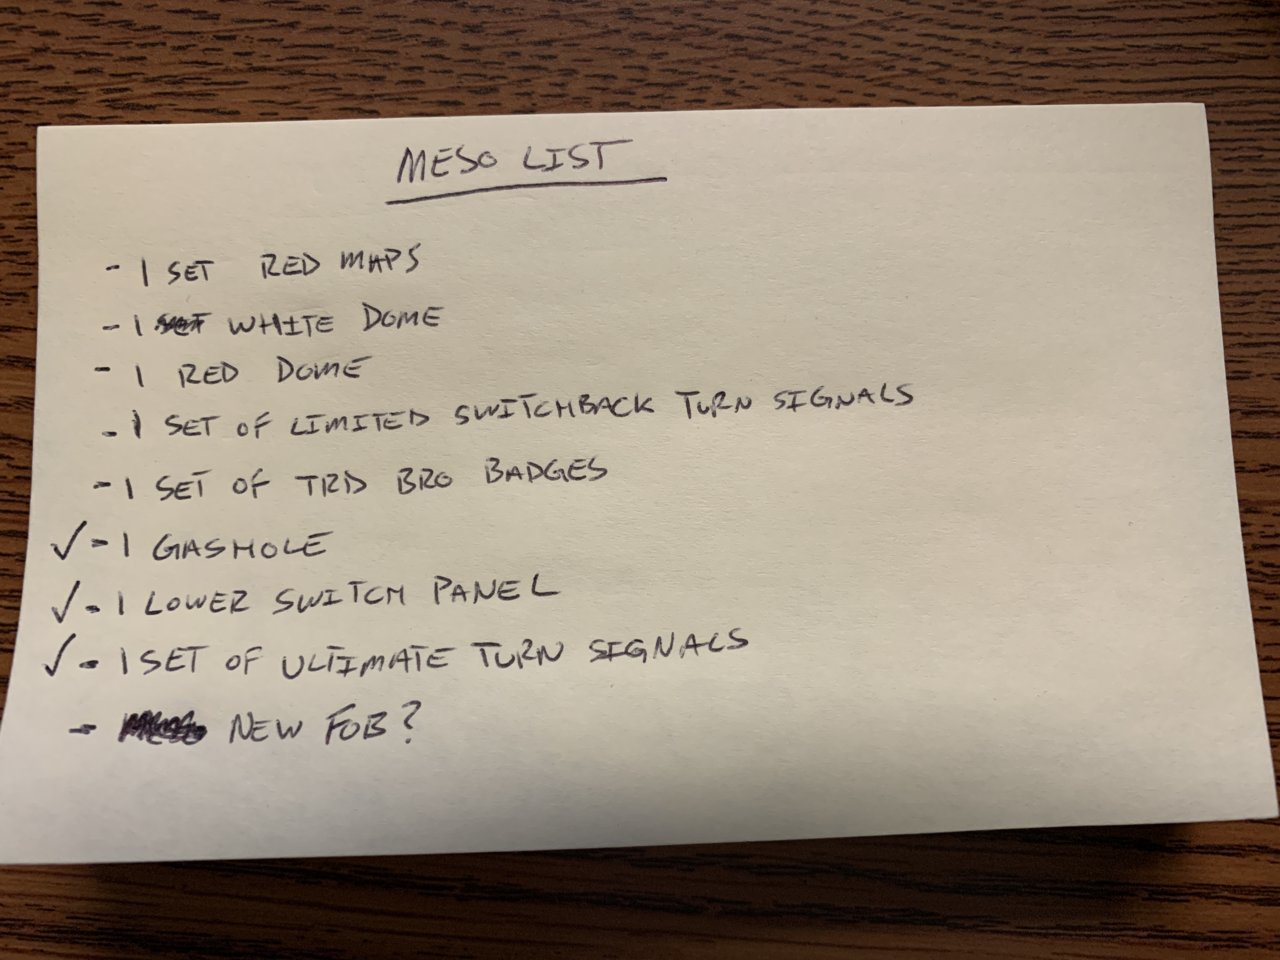 MESO LIST
- 1 SET RED MAPS
- 1 WHITE DOME
- 1 RED DOME
- 1 SET OF LIMITED SWITCHBACK TURN SIGNALS
- 1 SET OF TRD BRO BADGES
✓ - 1 GASHOLE
✓ - 1 LOWER SWITCH PANEL
✓ - 1 SET OF ULTIMATE TURN SIGNALS
- NEW FOB?